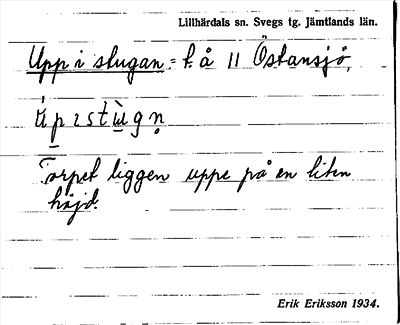 Lillhärdals sn. Svegs tg. Jämtlands län.
Upp i stugan = t. å 11 Östansjö,
Torpet ligger uppe på en liten
höjd.
Erik Eriksson 1934.